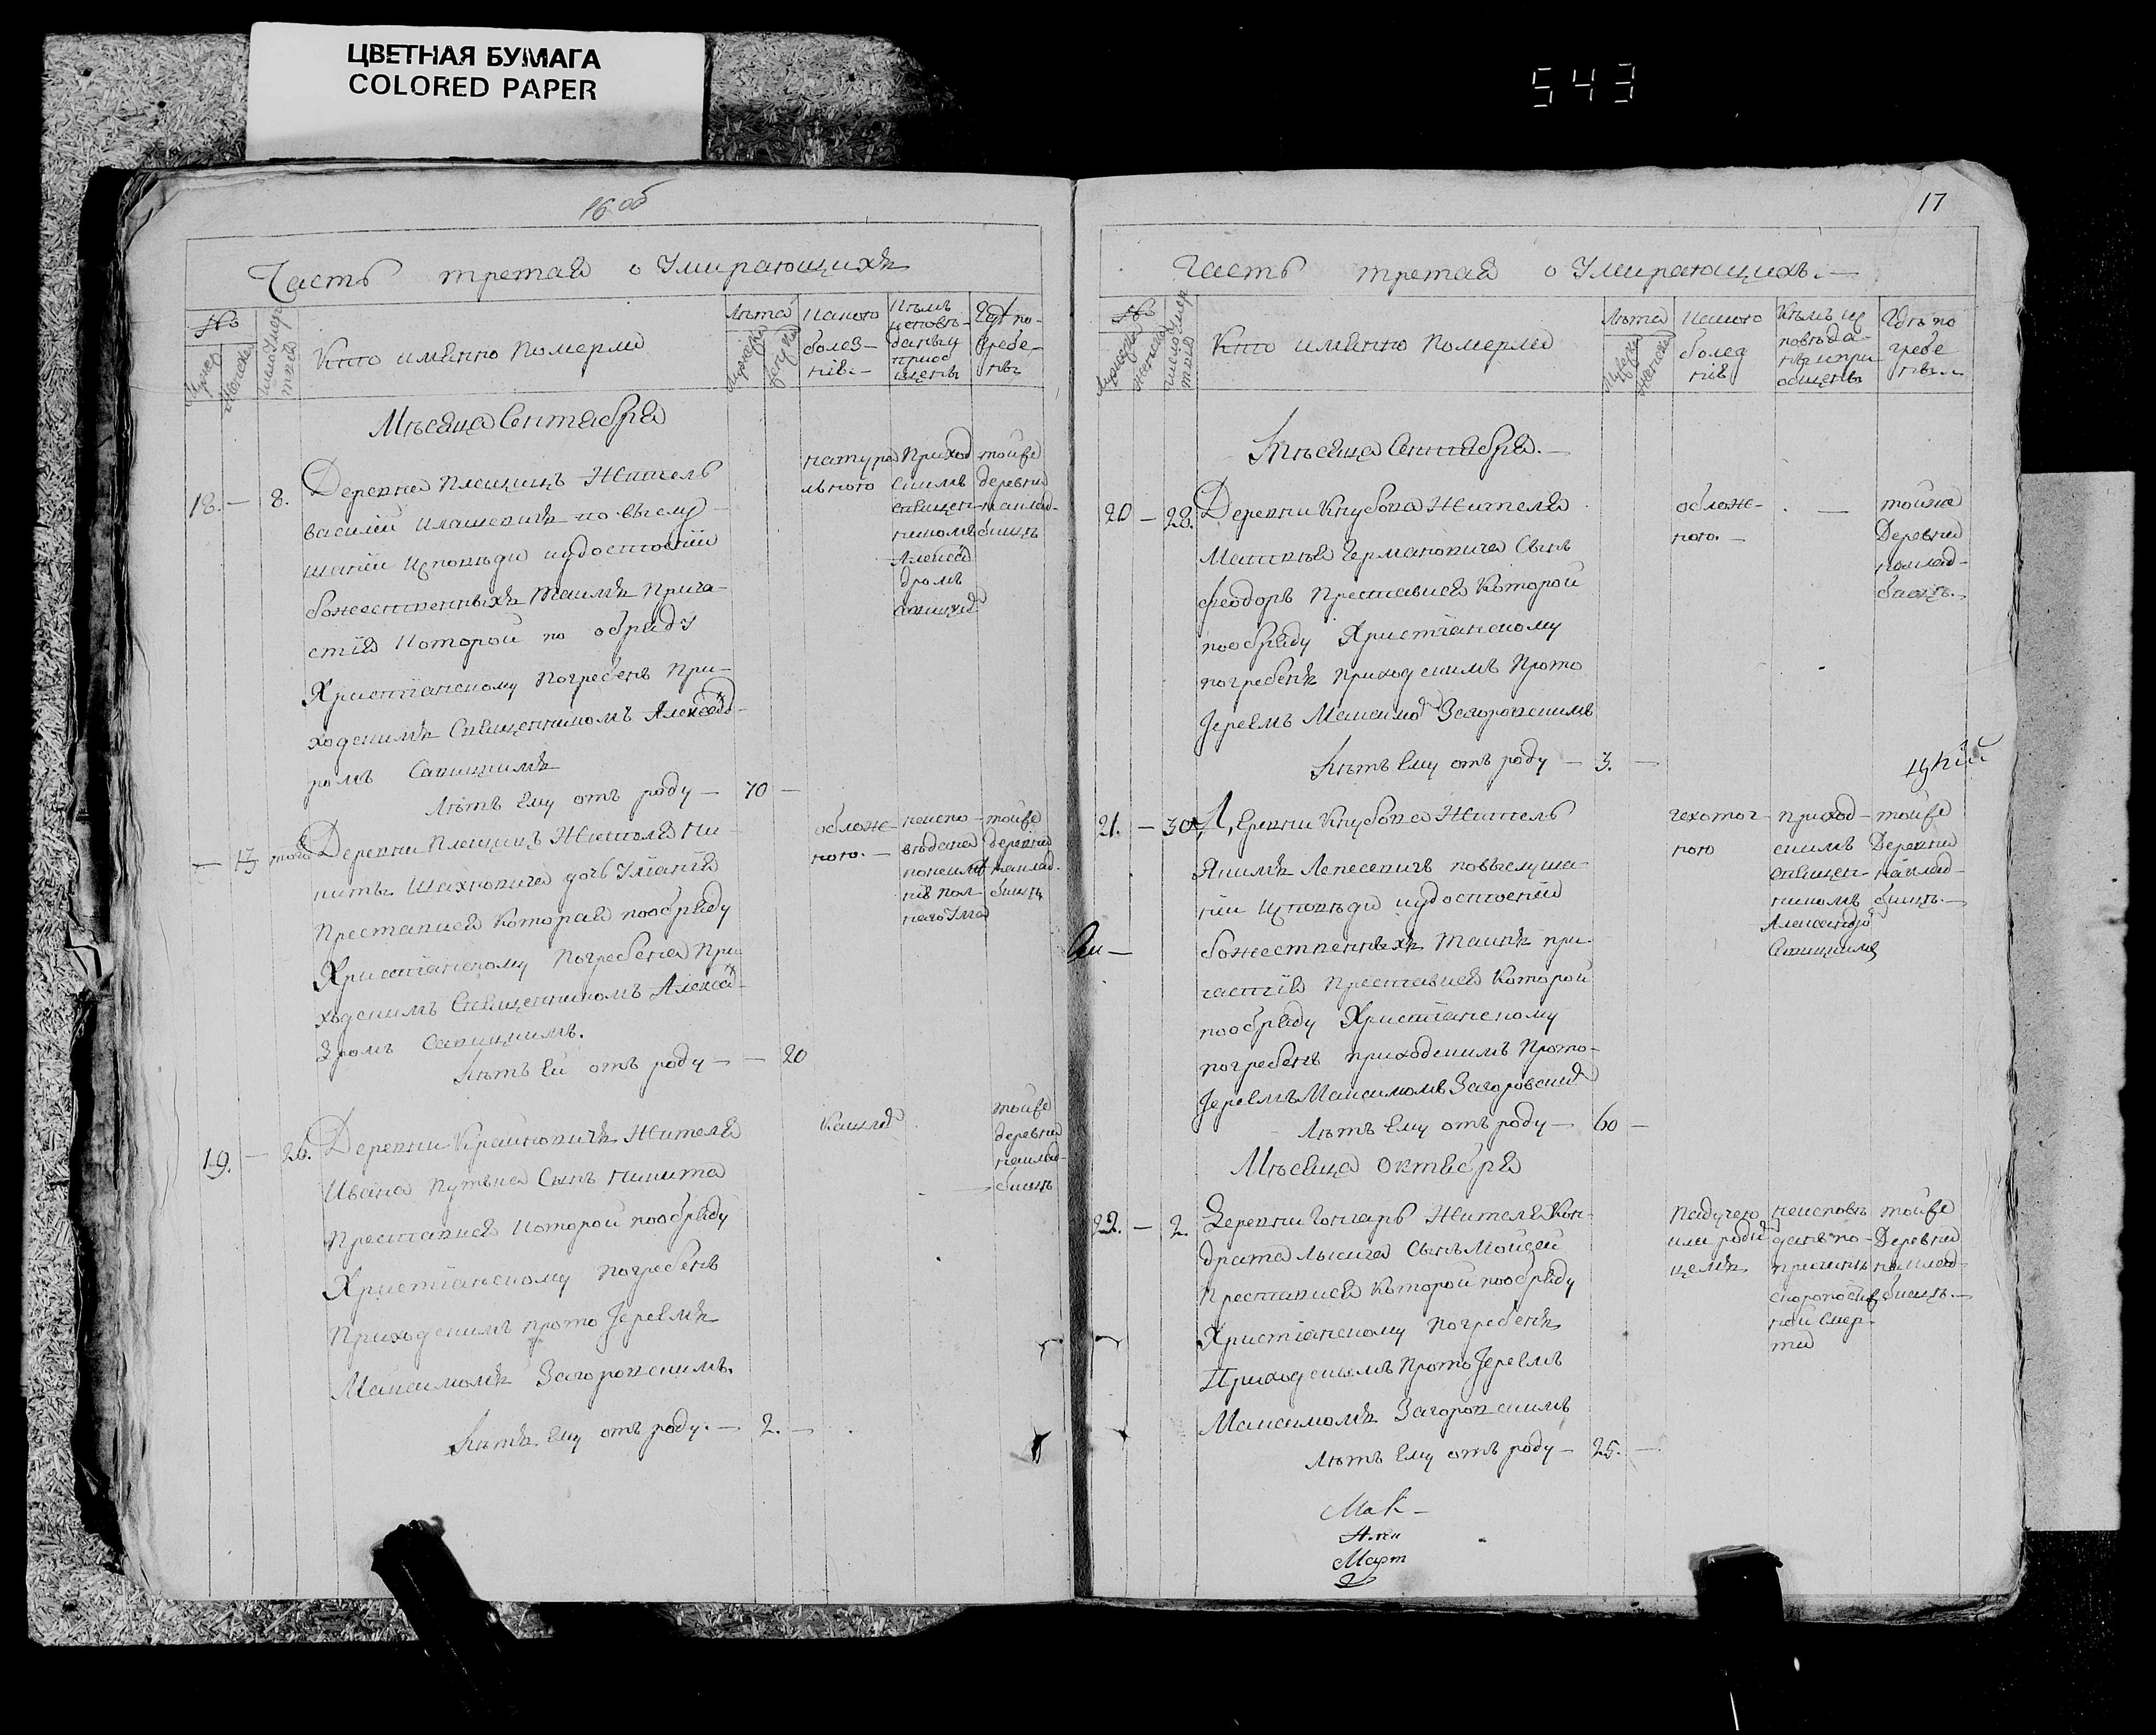 ЦВЕТНАЯ БУМАГА
COLORED PAPER
543
16 об
Часть третая о Умирающихъ
№
Кто имянно Померли
Лѣта
Какою
болез-
нію
Кѣмъ
исповѣ-
даны и
приоб
щены
Гдѣ по-
гребе-
ны
Мѣсяца Сентабря
18. — 8.
Деревни Плещицъ Житель
василій Илашевичъ по выслу-
шаніи Исповѣди иудостоеніи
божественныхъ Таинъ Прича-
стія Которой по обряду
Христіанскому Погребенъ При-
ходскимъ Священникомъ Алексан-
ромъ Савицкимъ
Лѣтъ Ему отъ роду — 70 —
натура
льною
Приход
скимъ
священ-
никомъ
Алексан
дромъ
Савицки
тойже
деревни
наклад-
бищѣ
— 13 того
Деревни Плещицъ Жителя Ни-
киты Шахновича дочь Уліанія
Преставися Которая пообряду
Христіанскому Погребена При-
ходскимъ Священникомъ Алексан-
дромъ Савицкимъ.
Лѣтъ Ей отъ роду — — 20
облож-
ною. —
неиспо-
вѣдана
понеимѣ
нію пол-
наго Ума
тойже
деревни
наклад-
бищѣ
19. — 26.
Деревни Крайновичъ Жителя
Ивана Путьна Сынъ Никита
Преставися Которой пообряду
Христіанскому погребенъ
Приходскимъ прото Іереемъ
Максимомъ Загоровскимъ.
Лѣтъ Ему отъ роду. — 2. —
Кашля
тойже
деревни
наклад-
бищѣ
17
Часть третая о Умирающихъ. —
№
Кто имянно Померли
Лѣта
Какою
болез
нію
Кѣмъ ис
повѣда-
ны ипри
общены
Гдѣ по
гребе
ны
Мѣсяца Сентабря. —
20 — 28.
Деревни Кнубова Жителя
Матвѣя Германовича Сынъ
Феодоръ Преставися Которой
пообряду Христіанскому
погребенъ Приходскимъ Прото
Іереемъ Максимо Загоровскимъ
Лѣтъ Ему отъ роду — 3. —
облож-
ною. —
тойже
Деревни
наклад-
бищѣ. —
цкій
21. — 30
Деревни Кнубова Житель
Якимъ Лепесевичъ повыслуша-
ніи Исповѣди иудостоеніи
божественныхъ Таинъ при-
частія Преставися Которой
пообряду Христіанскому
погребенъ приходскимъ Прото-
Іереемъ Максимомъ Загоровски
Лѣтъ Ему отъ роду — 60 —
чехотог
ною
приход-
скимъ
священ-
никомъ
Александро
Савицкимъ
тойже
Деревни
наклад-
бищѣ. —
Мѣсяца Октября
22. — 2.
Деревни Гончары Жителя Кон-
драта Лысича Сынъ Моисей
Преставися Которой пообряду
Христіанскому Погребенъ
Приходскимъ Прото Іереемъ
Максимомъ Загоровскимъ
Лѣтъ Ему отъ роду — 25. —
Падучею
или роди
цемъ
неисповѣ
данъ по-
причинѣ
скоропости
ной Смер-
ти
тойже
Деревни
наклад-
бищѣ. —
Мак —
Март